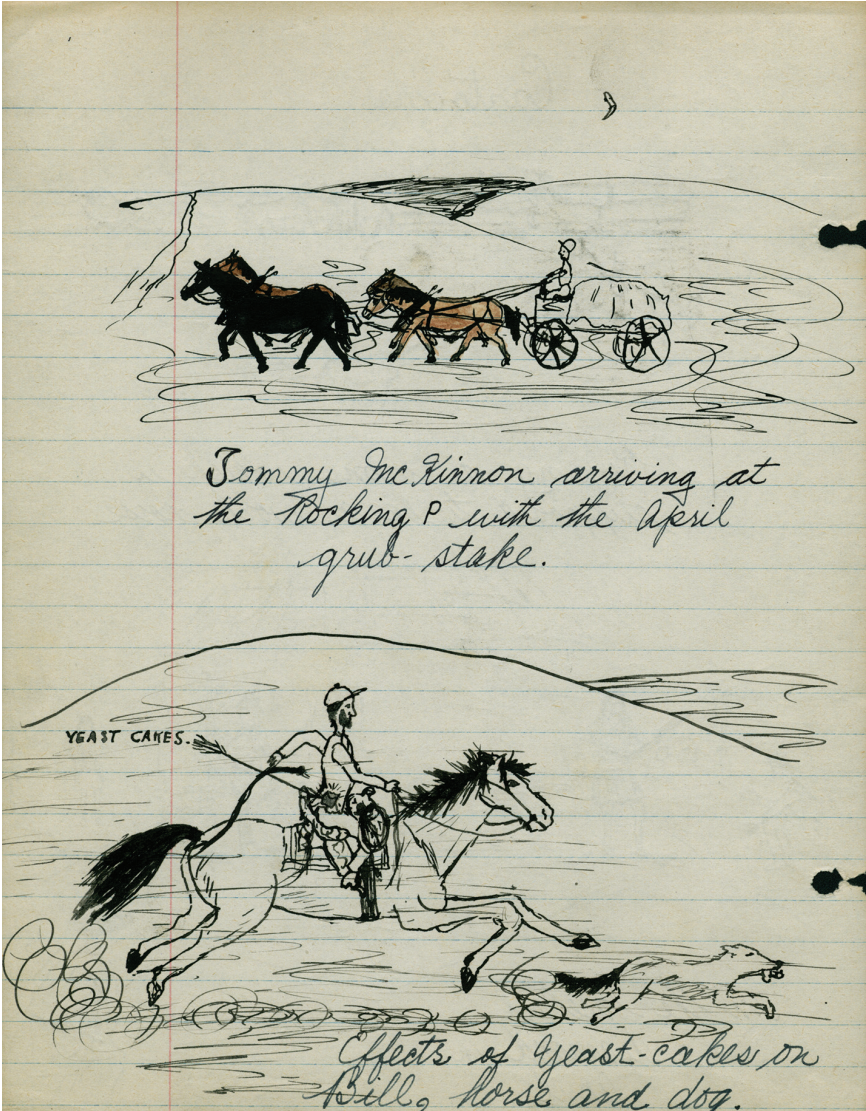 Tommy McKinnon arriving at
the Rocking P with the April
grub-stake.
YEAST CAKES.
Effects of yeast-cakes on
Bill, horse and dog.